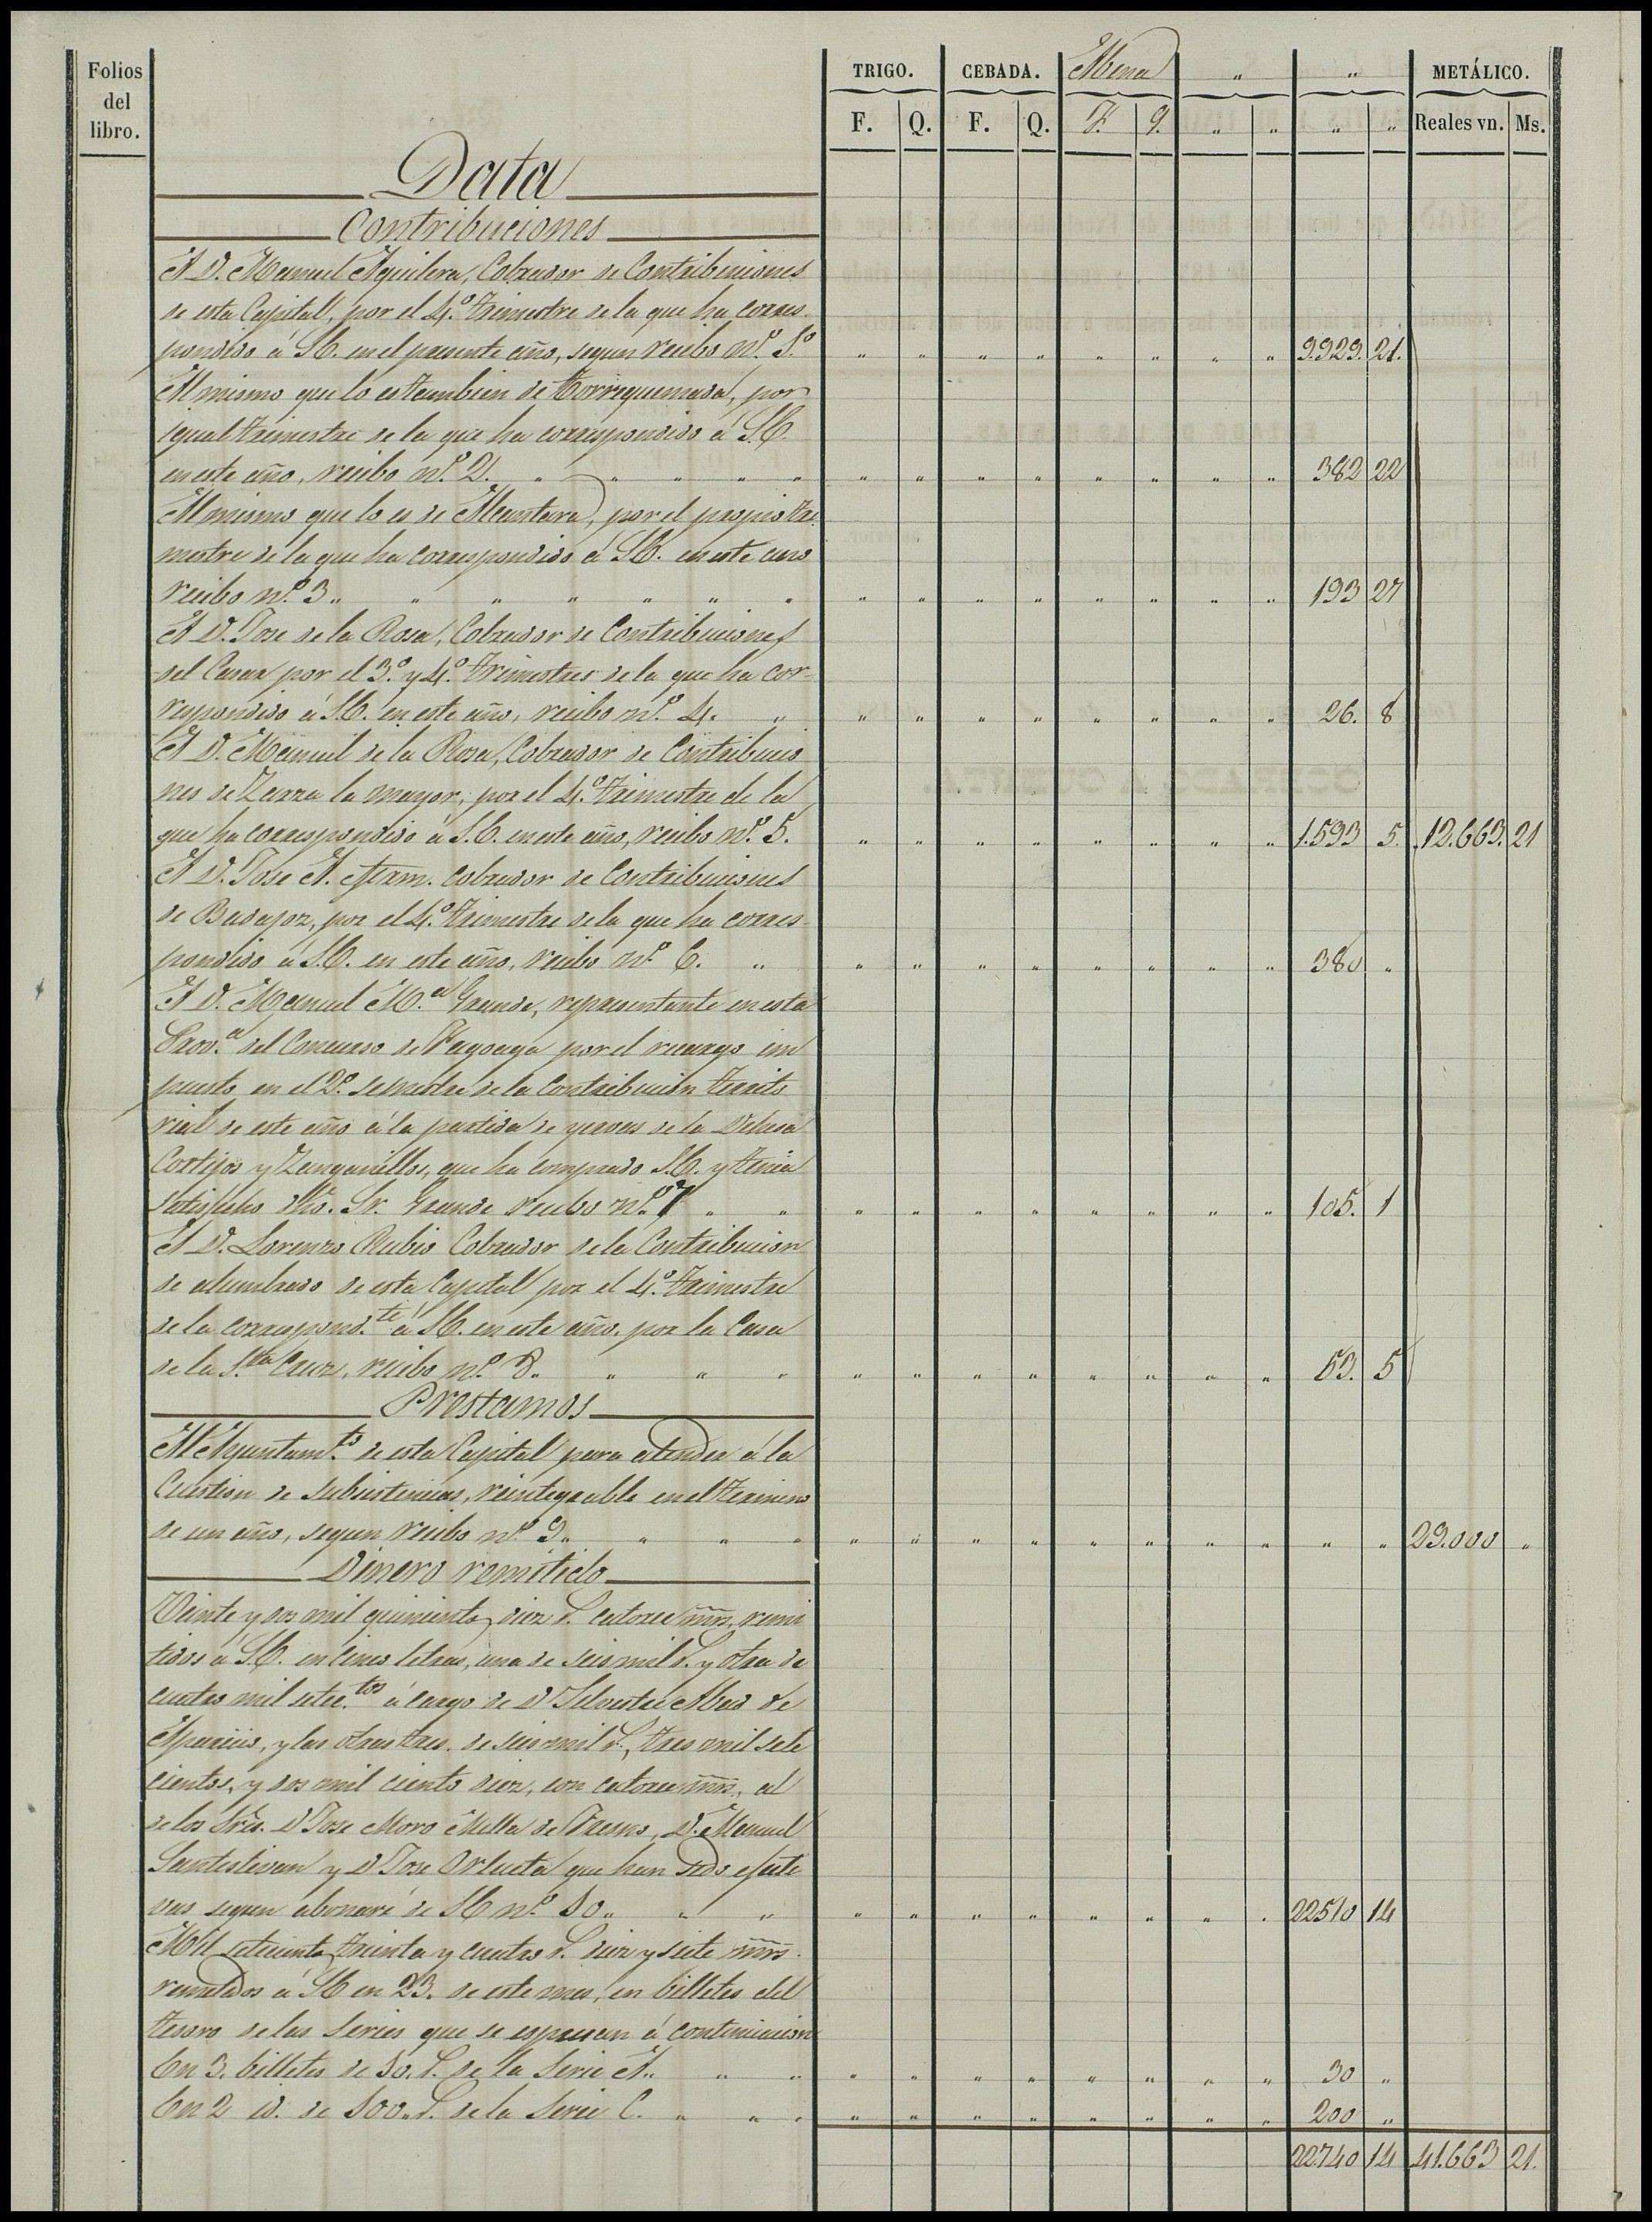 Folios del libro.
TRIGO. CEBADA. Abena " " METÁLICO.
F. Q. F. Q. F. q. " " " " Reales vn. Ms.
Data
Contribuciones
A D. Manuel Aguilera, Cobrador de Contribuciones
de esta Capital, por el 4.º trimestre de la que ha corres-
pondido á S.E. en el presente año, segun recibo n.º 1.º " " " " " " " " 9.929. 21.
Al mismo que lo es tambien de Torrequemada, por
igual trimestre de la que ha correspondido á S.E.
en este año, recibo n.º 2. " " " " " " " " " " " " " 382 22
Al mismo que lo es de Alcantara, por el propio tri-
mestre de la que ha correspondido á S.E. en este año
recibo n.º 3 " " " " " " " " " " " " " " " 193 27
A D. Jose de la Rosa, Cobrador de Contribuciones
del Casar por el 3.º y 4.º trimestres de la que ha cor-
respondido á S.E. en este año, recibo n.º 4. " " " " " " " " " 26. 8
A D. Manuel de la Rosa, Cobrador de Contribucio
nes de Zarza la mayor, por el 4.º trimestre de la
que ha correspondido á S.E. en este año, recibo n.º 5. " " " " " " " " 1.593 5. 12.663. 21
A D. Jose A. Cobrador de Contribuciones
de Badajoz, por el 4.º trimestre de la que ha corres-
pondido á S.E. en este año, recibo n.º 6. " " " " " " " " " 380 "
A D. Manuel M.ª Grande, representante en esta
Prov.ª del Concurso de Fagoaga por el recargo im
puesto en el 2.º semestre de la Contribucion territo
rial de este año á la partida de yervas de la Dehesa
Cortijos y Zanganillos, que ha comprado S.E. y tenia
satisfecho dho. Sr. Grande recibo n.º 7 " " " " " " " " " " 105. 1
A D. Lorenzo Rubio Cobrador de la Contribucion
de alumbrado de esta Capital por el 4.º trimestre
de la correspond.te á S.E. en este año por la Casa
de la S.ta Cruz, recibo n.º 8. " " " " " " " " " " " 53. 5
Prestamos
Al Ayuntam.to de esta Capital para atender á la
Cuestion de subsistencias, reintegrable en el termino
de un año, segun recibo n.º 9 " " " " " " " " " " " " " " 29.000 "
Dinero remitido
Veinte y dos mil quinientos diez r. catorce mrs. remi
tidos á S.E. en cinco letras, una de seis mil r. y otra de
cuatro mil setec.tos á cargo de D. Silvestre Abad de
Aparicio, y las otras tres, de seis mil r., tres mil sete
cientos, y dos mil ciento diez, con catorce mrs., al
de los Sres. D. Jose Moro Mella de Fresno, D. Manuel
Santestevan y D. Jose Orlueta que han sido efecti
vas segun abonaré de S.E. n.º 10 " " " " " " " " " " " 22510 14
Mil setecientos treinta y cuatro r. diez y siete mrs.
remitidos á S.E. en 23. de este mes, en billetes del
tesoro de las series que se espresan á continuacion
En 3. billetes de 10. r. de la Serie A. " " " " " " " " " " 30 "
En 2 id. de 100. r. de la Serie C. " " " " " " " " " " " 200 "
22740 14 41.663 21.